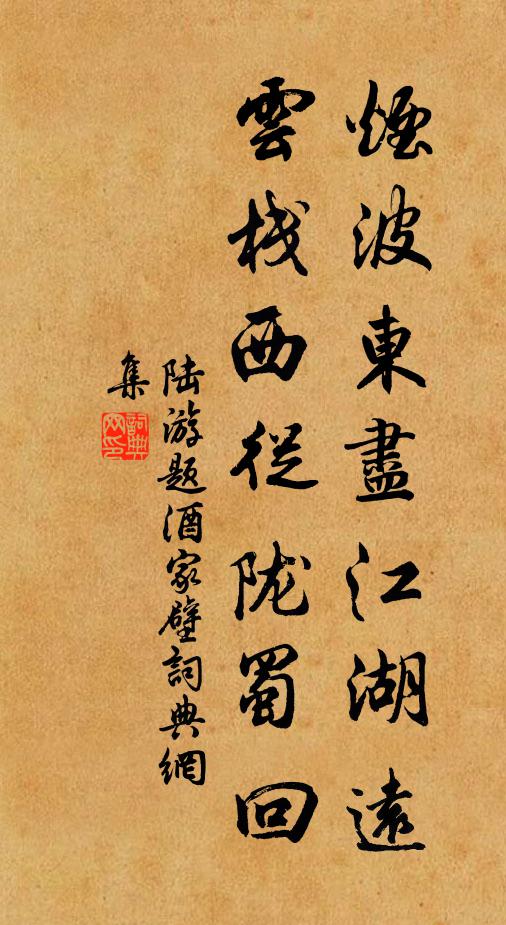 煙波東盡江湖遠
雲棧西從陇蜀回
陆游題酒家壁詞典網
集
詞典
网印